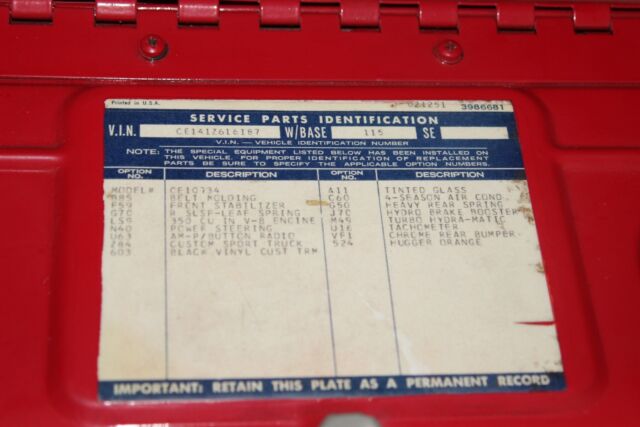 Printed in U.S.A. 021251 3986681
SERVICE PARTS IDENTIFICATION
V.I.N. CE141Z616187 W/BASE 115 SE
V.I.N. — VEHICLE IDENTIFICATION NUMBER
NOTE: THE SPECIAL EQUIPMENT LISTED BELOW HAS BEEN INSTALLED ON
THIS VEHICLE. FOR PROPER IDENTIFICATION OF REPLACEMENT
PARTS BE SURE TO SPECIFY THE APPLICABLE OPTION NUMBERS.
OPTION NO. DESCRIPTION OPTION NO. DESCRIPTION
MODEL# CE10734 A11 TINTED GLASS
B85 BELT MOLDING C60 4-SEASON AIR COND
F59 FRONT STABILIZER G50 HEAVY REAR SPRING
G70 R SLSP-LEAF SPRING J70 HYDRO BRAKE BOOSTER
LS9 350 CU IN V-8 ENGINE M49 TURBO HYDRA-MATIC
N40 POWER STEERING U16 TACHOMETER
U63 AM-P/BUTTON RADIO VF1 CHROME REAR BUMPER
Z84 CUSTOM SPORT TRUCK 524 HUGGER ORANGE
603 BLACK VINYL CUST TRM
IMPORTANT: RETAIN THIS PLATE AS A PERMANENT RECORD